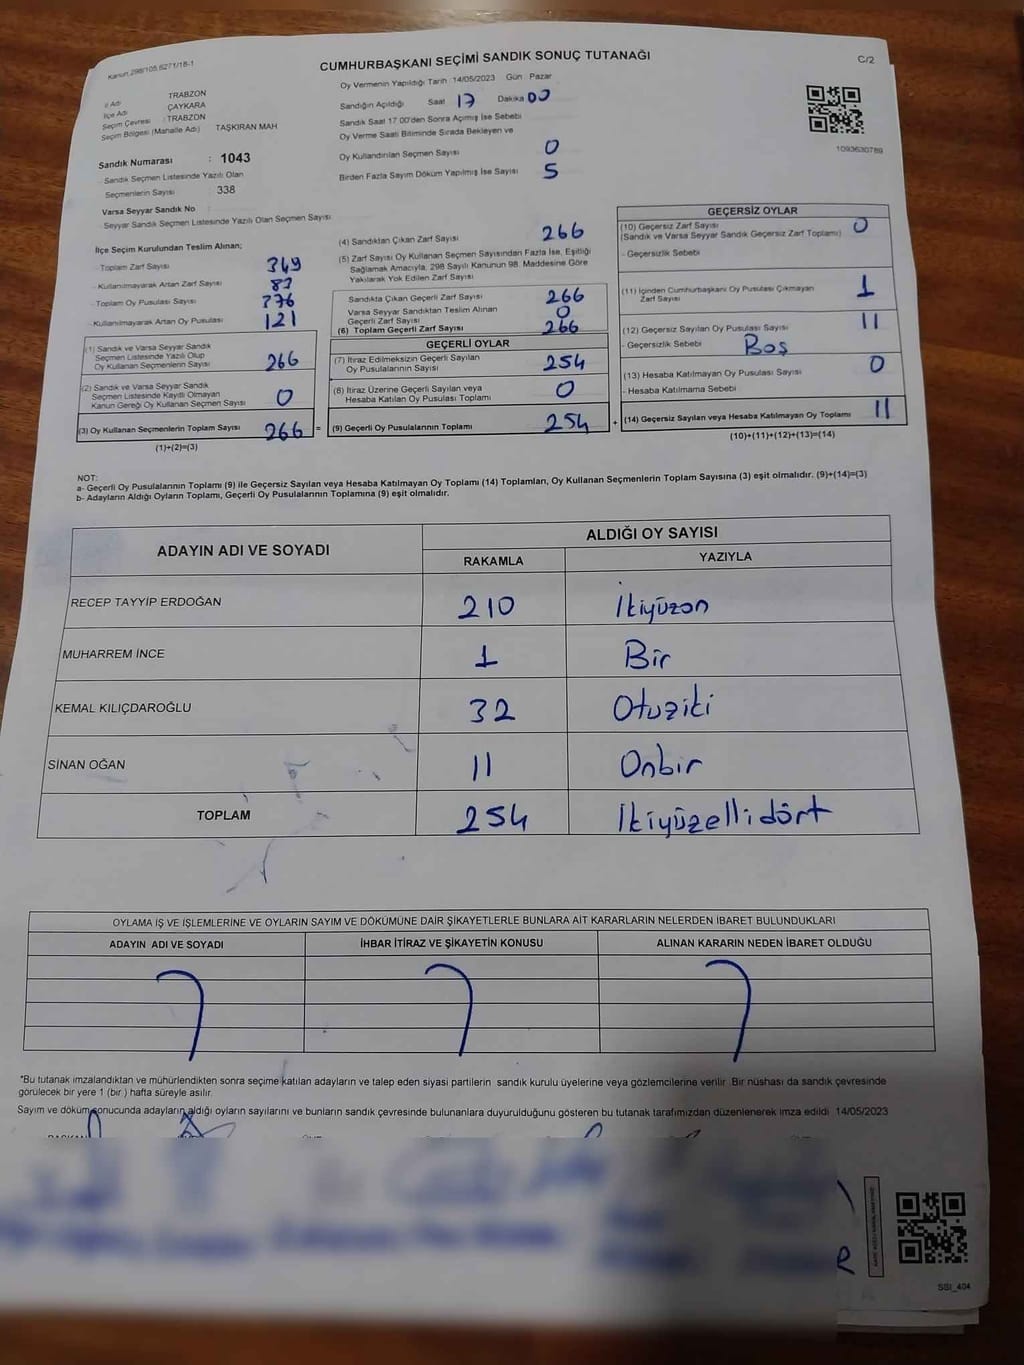 Kanun.298/105,6271/18-1
CUMHURBAŞKANI SEÇİMİ SANDIK SONUÇ TUTANAĞI
C/2
İl Adı TRABZON
İlçe Adı ÇAYKARA
Seçim Çevresi : TRABZON
Seçim Bölgesi (Mahalle Adı) TAŞKIRAN MAH
Sandık Numarası : 1043
Sandık Seçmen Listesinde Yazılı Olan
Seçmenlerin Sayısı 338
Varsa Seyyar Sandık No
Seyyar Sandık Seçmen Listesinde Yazılı Olan Seçmen Sayısı
Oy Vermenin Yapıldığı Tarih 14/05/2023 Gün Pazar
Sandığın Açıldığı Saat 17 Dakika 00
Sandık Saat 17.00'den Sonra Açımış İse Sebebi
Oy Verme Saati Bitiminde Sırada Bekleyen ve
Oy Kullandırılan Seçmen Sayısı 0
Birden Fazla Sayım Döküm Yapılmış İse Sayısı 5
1093630789
İlçe Seçim Kurulundan Teslim Alınan;
Toplam Zarf Sayısı 349
Kullanılmayarak Artan Zarf Sayısı 83
Toplam Oy Pusulası Sayısı 376
Kullanılmayarak Artan Oy Pusulası 121
(1) Sandık ve Varsa Seyyar Sandık
Seçmen Listesinde Yazılı Olup
Oy Kullanan Seçmenlerin Sayısı 266
(2) Sandık ve Varsa Seyyar Sandık
Seçmen Listesinde Kayıtlı Olmayan
Kanun Gereği Oy Kullanan Seçmen Sayısı 0
(3) Oy Kullanan Seçmenlerin Toplam Sayısı 266 =
(1)+(2)=(3)
(4) Sandıktan Çıkan Zarf Sayısı 266
(5) Zarf Sayısı Oy Kullanan Seçmen Sayısından Fazla İse, Eşitliği
Sağlamak Amacıyla, 298 Sayılı Kanunun 98. Maddesine Göre
Yakılarak Yok Edilen Zarf Sayısı
Sandıkta Çıkan Geçerli Zarf Sayısı 266
Varsa Seyyar Sandıktan Teslim Alınan
Geçerli Zarf Sayısı 0
(6) Toplam Geçerli Zarf Sayısı 266
GEÇERLİ OYLAR
(7) İtiraz Edilmeksizin Geçerli Sayılan
Oy Pusulalarının Sayısı 254
(8) İtiraz Üzerine Geçerli Sayılan veya
Hesaba Katılan Oy Pusulası Toplamı 0
(9) Geçerli Oy Pusulalarının Toplamı 254 +
GEÇERSİZ OYLAR
(10) Geçersiz Zarf Sayısı 0
(Sandık ve Varsa Seyyar Sandık Geçersiz Zarf Toplamı)
- Geçersizlik Sebebi
(11) İçinden Cumhurbaşkanı Oy Pusulası Çıkmayan
Zarf Sayısı 1
(12) Geçersiz Sayılan Oy Pusulası Sayısı 11
- Geçersizlik Sebebi Boş
(13) Hesaba Katılmayan Oy Pusulası Sayısı 0
- Hesaba Katılmama Sebebi
(14) Geçersiz Sayılan veya Hesaba Katılmayan Oy Toplamı 11
(10)+(11)+(12)+(13)=(14)
NOT:
a- Geçerli Oy Pusulalarının Toplamı (9) ile Geçersiz Sayılan veya Hesaba Katılmayan Oy Toplamı (14) Toplamları, Oy Kullanan Seçmenlerin Toplam Sayısına (3) eşit olmalıdır. (9)+(14)=(3)
b- Adayların Aldığı Oyların Toplamı, Geçerli Oy Pusulalarının Toplamına (9) eşit olmalıdır.
ADAYIN ADI VE SOYADI ALDIĞI OY SAYISI
RAKAMLA YAZIYLA
RECEP TAYYİP ERDOĞAN 210 İkiyüzon
MUHARREM İNCE 1 Bir
KEMAL KILIÇDAROĞLU 32 Otuziki
SİNAN OĞAN 11 Onbir
TOPLAM 254 İkiyüzellidört
OYLAMA İŞ VE İŞLEMLERİNE VE OYLARIN SAYIM VE DÖKÜMÜNE DAİR ŞİKAYETLERLE BUNLARA AİT KARARLARIN NELERDEN İBARET BULUNDUKLARI
ADAYIN ADI VE SOYADI İHBAR İTİRAZ VE ŞİKAYETİN KONUSU ALINAN KARARIN NEDEN İBARET OLDUĞU
*Bu tutanak imzalandıktan ve mühürlendikten sonra seçime katılan adayların ve talep eden siyasi partilerin sandık kurulu üyelerine veya gözlemcilerine verilir. Bir nüshası da sandık çevresinde
görülecek bir yere 1 (bir ) hafta süreyle asılır.
Sayım ve döküm sonucunda adayların aldığı oyların sayılarını ve bunların sandık çevresinde bulunanlara duyurulduğunu gösteren bu tutanak tarafımızdan düzenlenerek imza edildi 14/05/2023
SSI_404